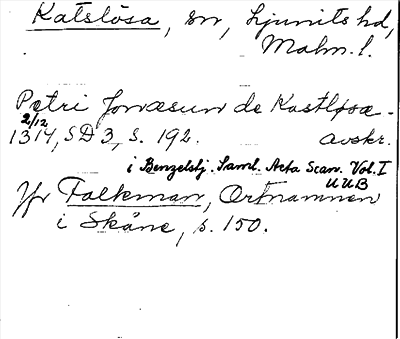 Katslösa, sn, Ljunits hd,
Malm. l.
Petri Jonæsun de Kastløsæ -
2/12
1314, SD 3, s. 192. avskr.
i Benzelstj. Saml. Acta Scan. Vol. I
UUB
Jfr Falkman, Ortnamnen
i Skåne, s. 150.